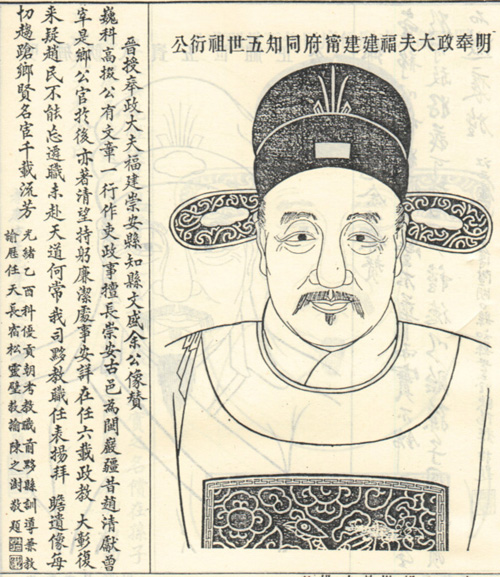 明奉政大夫福建建甯府同知五世祖衍公
晉授奉政大夫福建崇安縣知縣文盛余公像贊
巍科高掇公有文章一行作吏政事擅長崇安古邑為閩巖疆昔趙清獻曾
宰是鄉公官於後亦著清望持躬廉潔處事安詳在任六載政教大彰復
來疑趙民不能忘遷職未赴天道何常我司黟教職任表揚拜瞻遺像毋
切趨蹌鄉賢名宦千載流芳 光緒乙酉科優貢朝考教職首黟縣訓導兼教
諭歷任天長宿松靈璧教諭陳之澍敬題